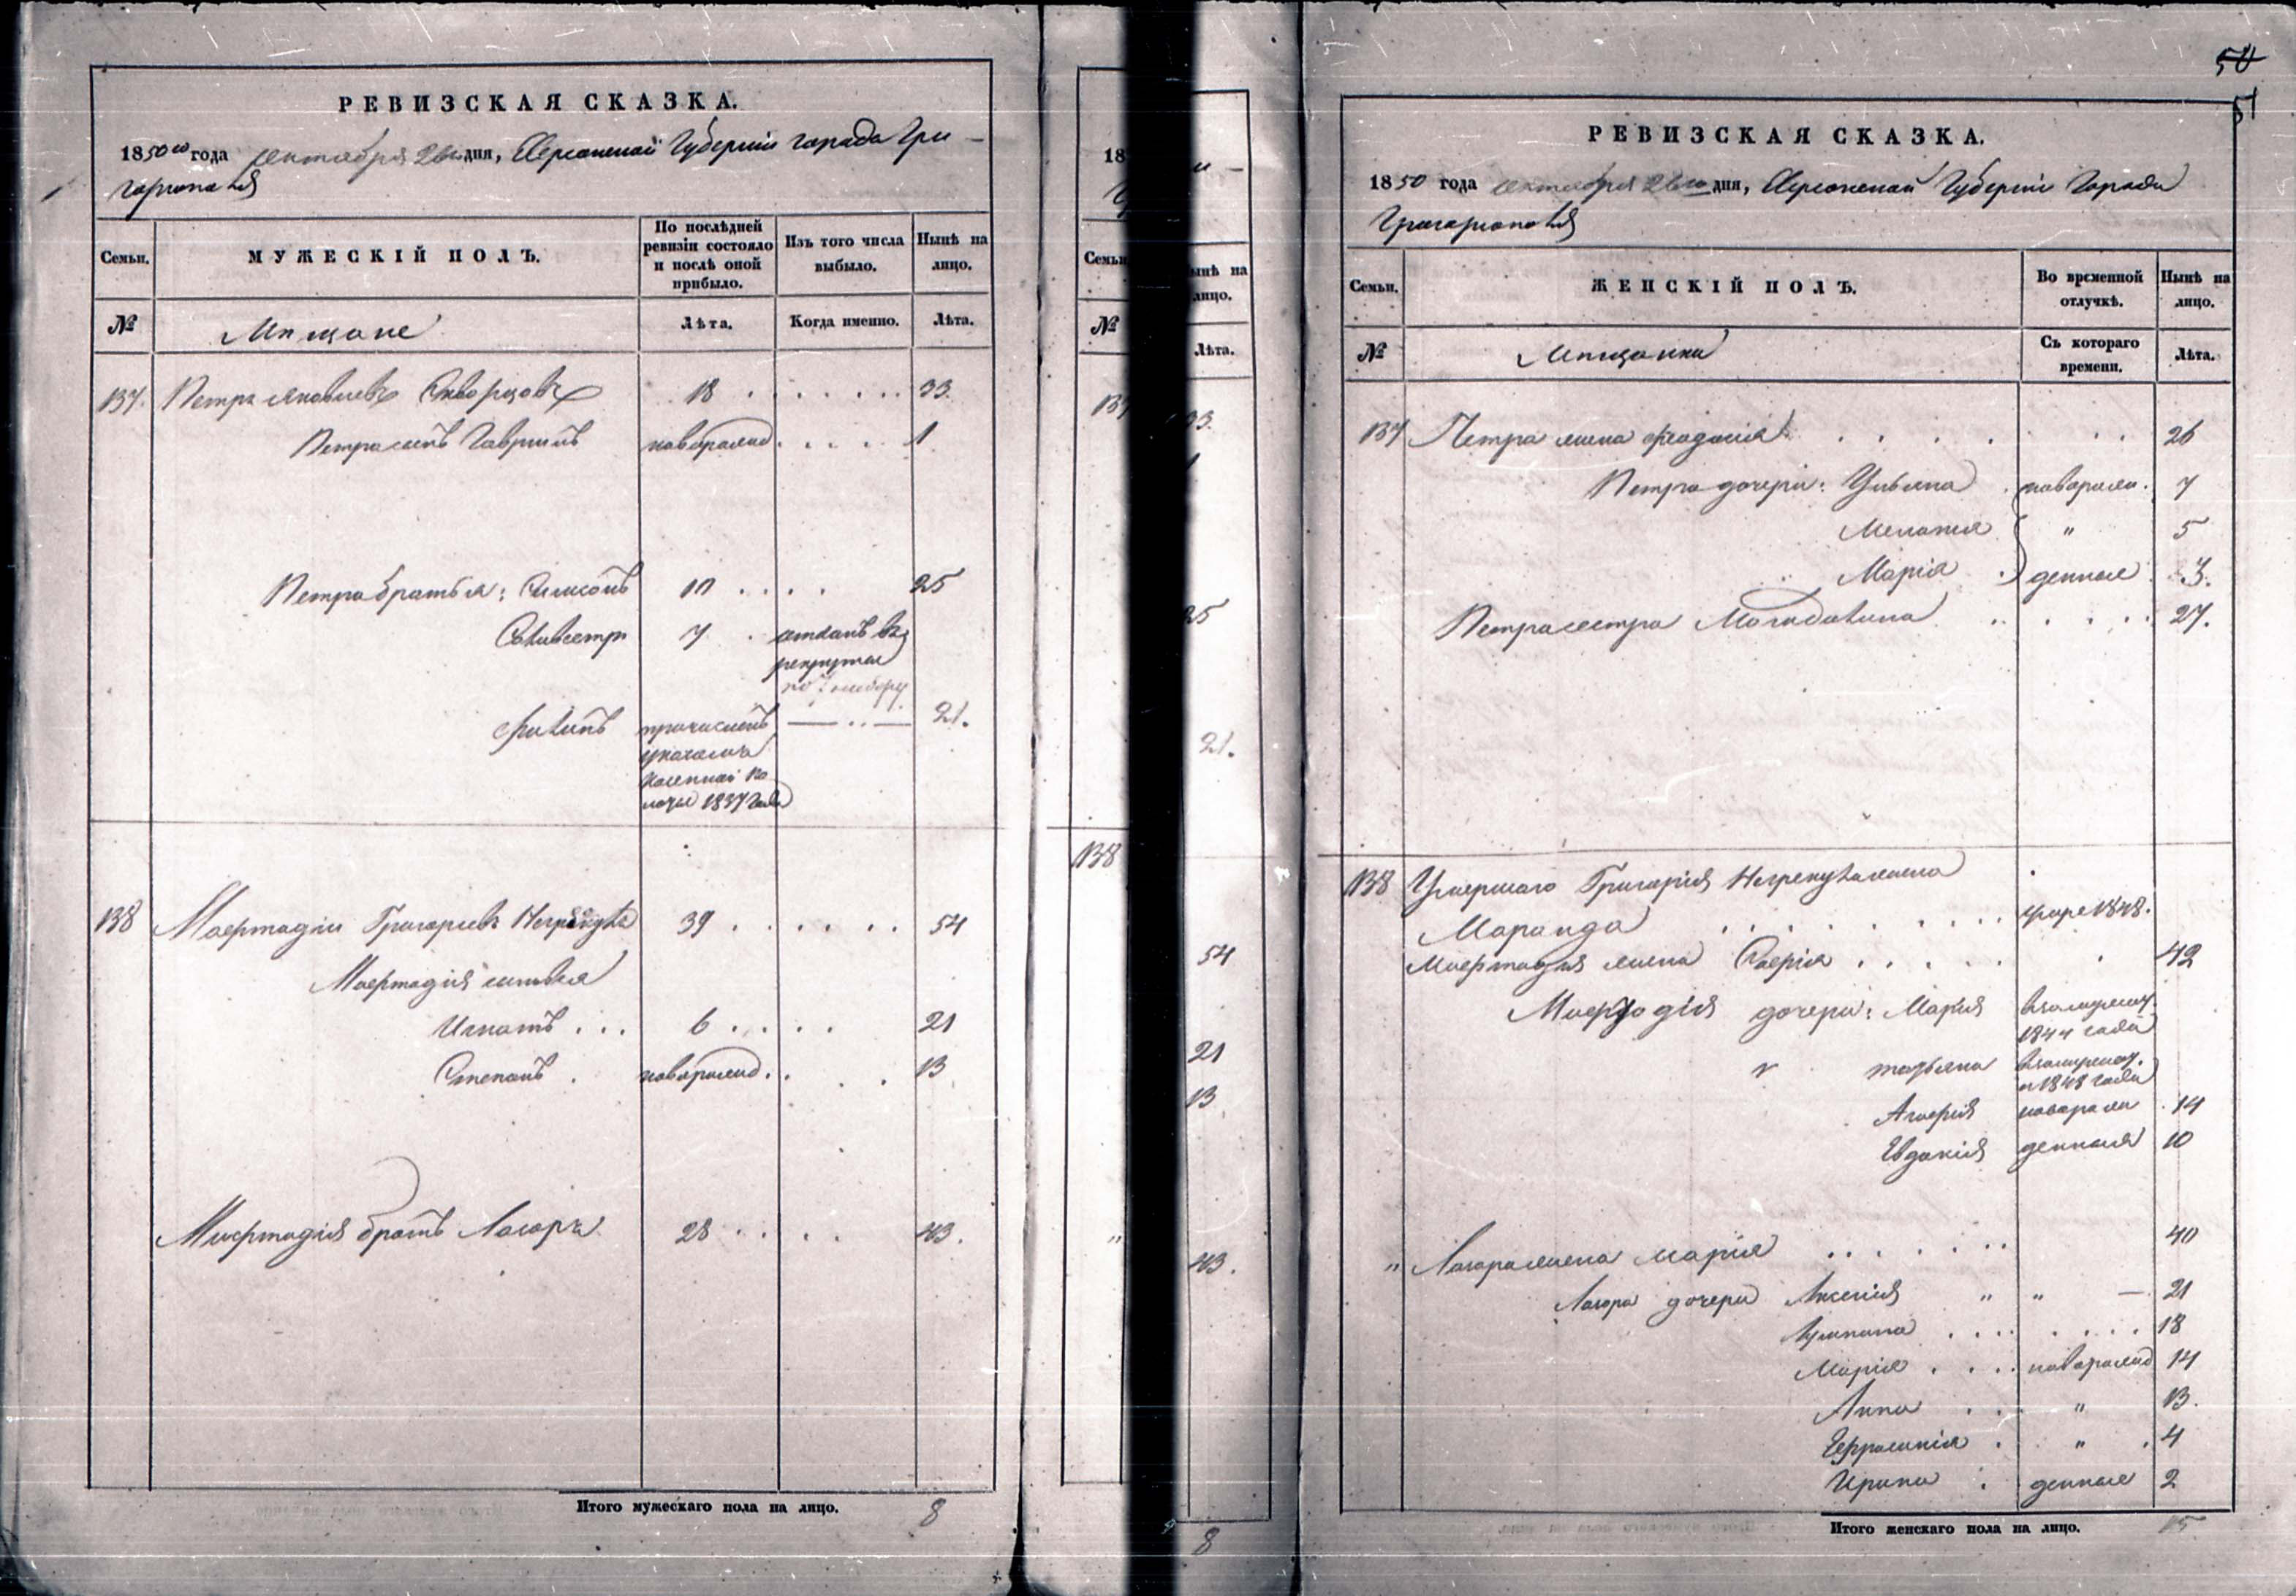 РЕВИЗСКАЯ СКАЗКА.
1850го года сентября 26го дня, Херсонской Губерніи города Гри-
горіополя
Семьи.
МУЖЕСКІЙ ПОЛЪ.
По послѣдней ревизіи состояло и послѣ оной прибыло.
Изъ того числа выбыло.
Нынѣ на лицо.
№
Мѣщане
Лѣта.
Когда именно.
Лѣта.
137. Петръ Яковлевъ Скворцовъ 18 . . . . . . . 33.
Петра сынъ Гавріилъ новорожд. . . . . 1
Петра братья: Симеонъ 10 . . . . 25
Силивестръ 7 . отданъ въ
рекруты
по 7 набору
Филипъ причисленъ — .. — 21.
указомъ
Казенной Па
латы 1837 года
138 Григорьевъ 39 . . . . . . 54
сыновья
Игнатъ . . . 6 . . . . 21
Степанъ . новорожд. . . . 13
братъ Лазарь 28 . . . . 43.
Итого мужескаго пола на лицо. 8
18
Семьи
№
137
138
"
и —
ынѣ на
лицо.
Лѣта.
33.
1
25
21.
54
21
13
43.
8
50
51
РЕВИЗСКАЯ СКАЗКА.
1850 года сентября 26го дня, Херсонской Губерніи Города
Григоріополя
Семьи.
ЖЕНСКІЙ ПОЛЪ.
Во временной отлучкѣ.
Нынѣ на лицо.
№
Мѣщанки
Съ котораго времени.
Лѣта.
137 Петра жена Феодосія . . . . . . 26
Петра дочери: Ульяна . новорож. 7
Меланія " 5
Марія . денные 3.
Петра сестра . . . . . 27.
138 Умершаго Григорія жена
. . . . . . . . умре 1848.
жена . . . . . 42
дочери: Марія въ замужест.
1844 года
" татьяна въ замужест.
1848 года
новорож . 14
Евдокія денныя 10
" Лазаря жена марія . . . . . . . 40
Лазаря дочери Аксенія " " — 21
. . . . . . . . 18
Марія . . . новорожд 14
Анна . . . " 13.
Ефросинія . " . 4
Ирина . денные 2
Итого женскаго пола на лицо. 15